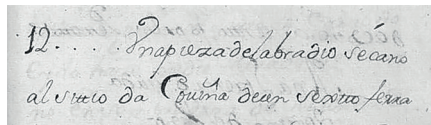 12.... Vna pieza de labradio sécano
al sitio da Couiña de un sexmo ferra